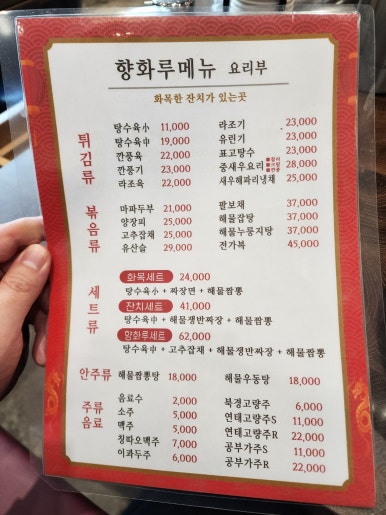 향화루메뉴 요리부
화목한 잔치가 있는곳
튀김류
탕수육小 11,000
탕수육中 19,000
깐풍육 22,000
깐풍기 23,000
라조육 22,000
라조기 23,000
유린기 23,000
표고탕수 23,000
중새우요리 28,000
새우해파리냉채 25,000
볶음류
마파두부 21,000
양장피 25,000
고추잡채 25,000
유산슬 29,000
팔보채 37,000
해물잡탕 37,000
해물누룽지탕 37,000
전가복 45,000
세트류
화목세트 24,000
탕수육小 + 짜장면 + 해물짬뽕
잔치세트 41,000
탕수육中 + 해물쟁반짜장 + 해물짬뽕
향화루세트 62,000
탕수육中 + 고추잡채 + 해물쟁반짜장 + 해물짬뽕
안주류
해물짬뽕탕 18,000
해물우동탕 18,000
주류
음료
음료수 2,000
소주 5,000
맥주 5,000
칭따오맥주 7,000
이과두주 6,000
북경고량주 6,000
연태고량주S 11,000
연태고량주R 22,000
공부가주S 11,000
공부가주R 22,000